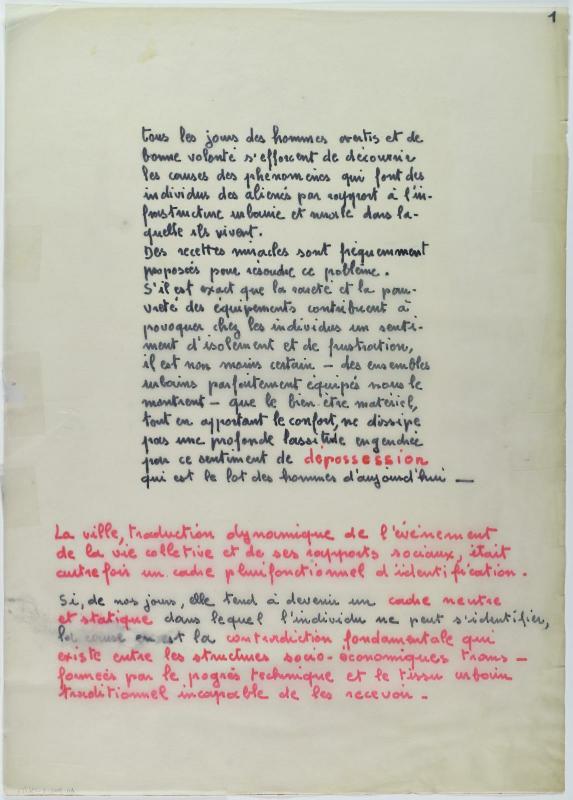 1
tous les jours des hommes avertis et de
bonne volonté s'efforcent de découvrir
les causes des phénomènes qui font des
individus des aliénés par rapport à l'in-
frastructure urbaine et rurale dans la-
quelle ils vivent.
Des recettes miracles sont fréquemment
proposées pour résoudre ce problème.
S'il est exact que la rareté et la pau-
vreté des équipements contribuent à
provoquer chez les individus un senti-
ment d'isolement et de frustration,
il est non moins certain – des ensembles
urbains parfaitement équipés nous le
montrent – que le bien-etre matériel,
tout en apportant le confort, ne dissipe
pas une profonde lassitude engendrée
par ce sentiment de dépossession
qui est le lot des hommes d'aujourd'hui —
La ville, traduction dynamique de l'événement
de la vie colletive et de ses rapports sociaux, était
autrefois un cadre plurifonctionnel d'identification.
Si, de nos jours, elle tend à devenir un cadre neutre
et statique dans lequel l'individu ne peut s'identifier,
la cause en est la contradiction fondamentale qui
existe entre les structures socio-économiques trans –
formées par le pogrès technique et le tissu urbain
traditionnel incapable de les recevoir –